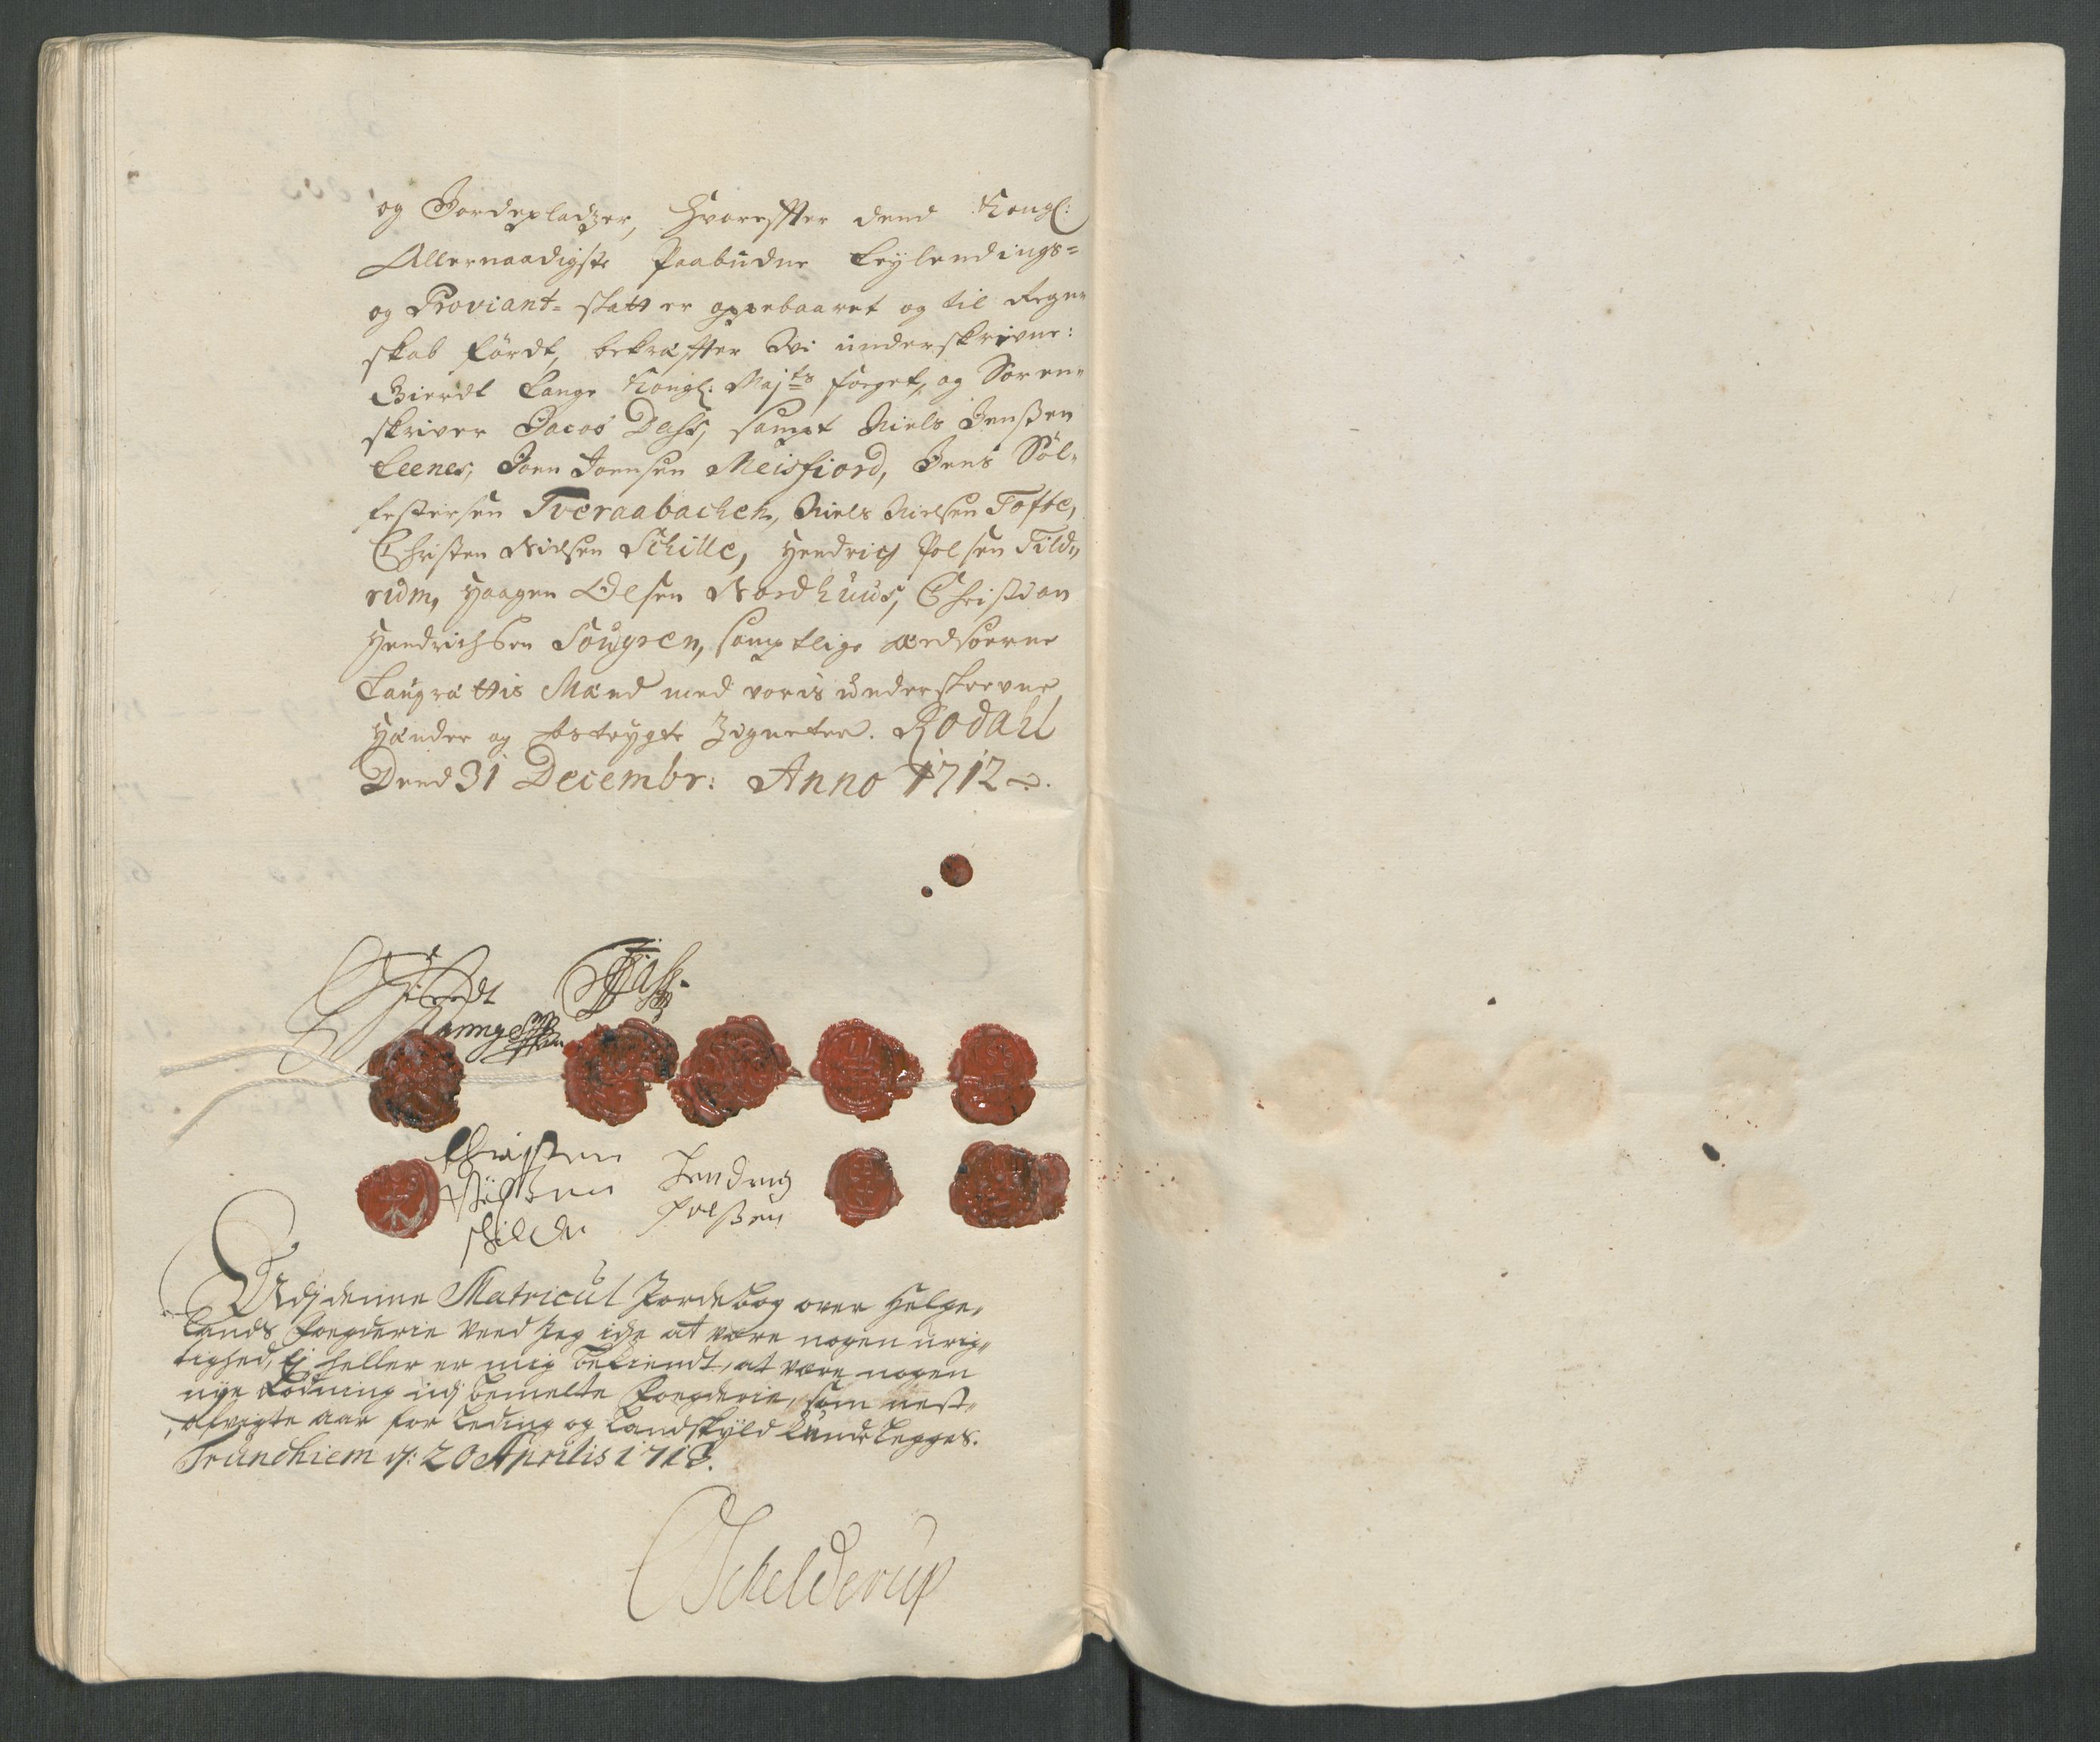 og Jordepladzer, Hvoreffter dend Kongl:
Allernaadigste Paabudne Leylendings=
og Proviant= skatt er oppebaaret og til Regn=
skab fördt, bekræffter Wi underskrevne:
Gierdt Lange Kongl: Majts foeget, og Soren=
skriver Jacob Dass, sampt Niels Jenßen
Leenes, Joen Joensen Meisfiord, Jens Söl=
festersen Tveraabachen, Niels Nielsen Tofte,
Christen Nielsen Schille, Hendrich Polsen Tild=
rum, Haagen Olsen Nordhuus, Christian
Hendrichsen Sougren, samptlige Ædsoerne
Laugrættis Mænd med voris underskrevne
Hænder og hostrygte Zigneter. Rodahl
Dend 31 Decembr: Anno 1712
Gierdt
Lange
JDass
Christen
Nielßen
Schille
Hendrich
Polßen
Udj denne Matricul Jordebog over Helge,,
lands foegderie veed Jeg icke at være nogen urig,,
tighed, Ej heller er mig bekiendt, at være nogen
nye Rödning udj bemelte foegderie, som nest,,
afvigte aar for Leding og Landskyld kunde legges.
Trundhiem d: 20 Aprilis 1713.
Schelderup